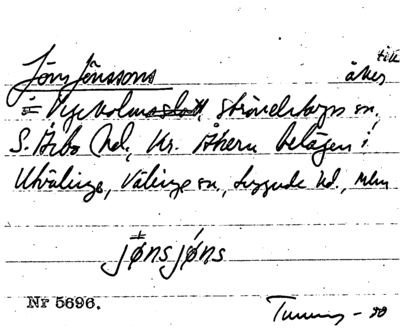 Jöns Jönssons åker
till Vegeholms slott, Strövelstorps sn,
S. Åsbo hd, Kr. Åkern belägen i
Utvälinge, Välinge sn, Luggude hd, Mlm
jønsjøns
Nr 5696.